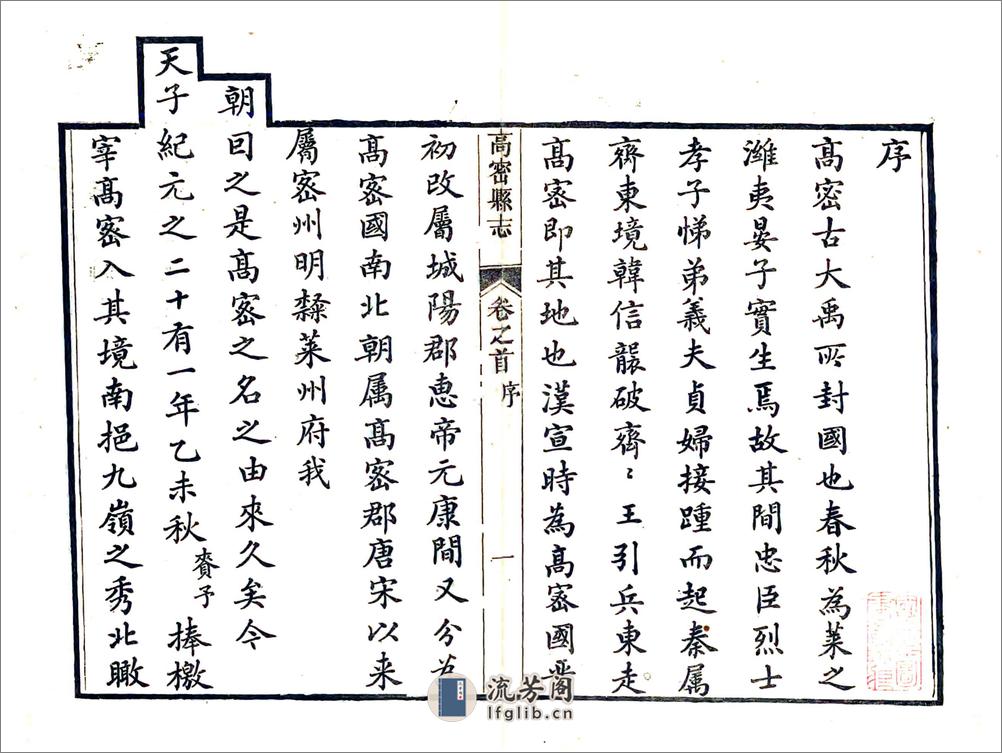 序
高密古大禹所封國也春秋為萊之
濰夷晏子實生焉故其間忠臣烈士
孝子悌弟義夫貞婦接踵而起秦属
齊東境韓信襲破齊〻王引兵東走
高密即其地也漢宣時為高密國晋
高密縣志 卷之首 序 一
初改屬城陽郡惠帝元康間又分為
高密國南北朝属高密郡唐宋以来
屬密州明隸萊州府我
朝因之是高密之名之由來久矣今
天子紀元之二十有一年乙未秋賚予捧檄
宰高密入其境南挹九嶺之秀北瞰
流芳阁
lfglib.cn